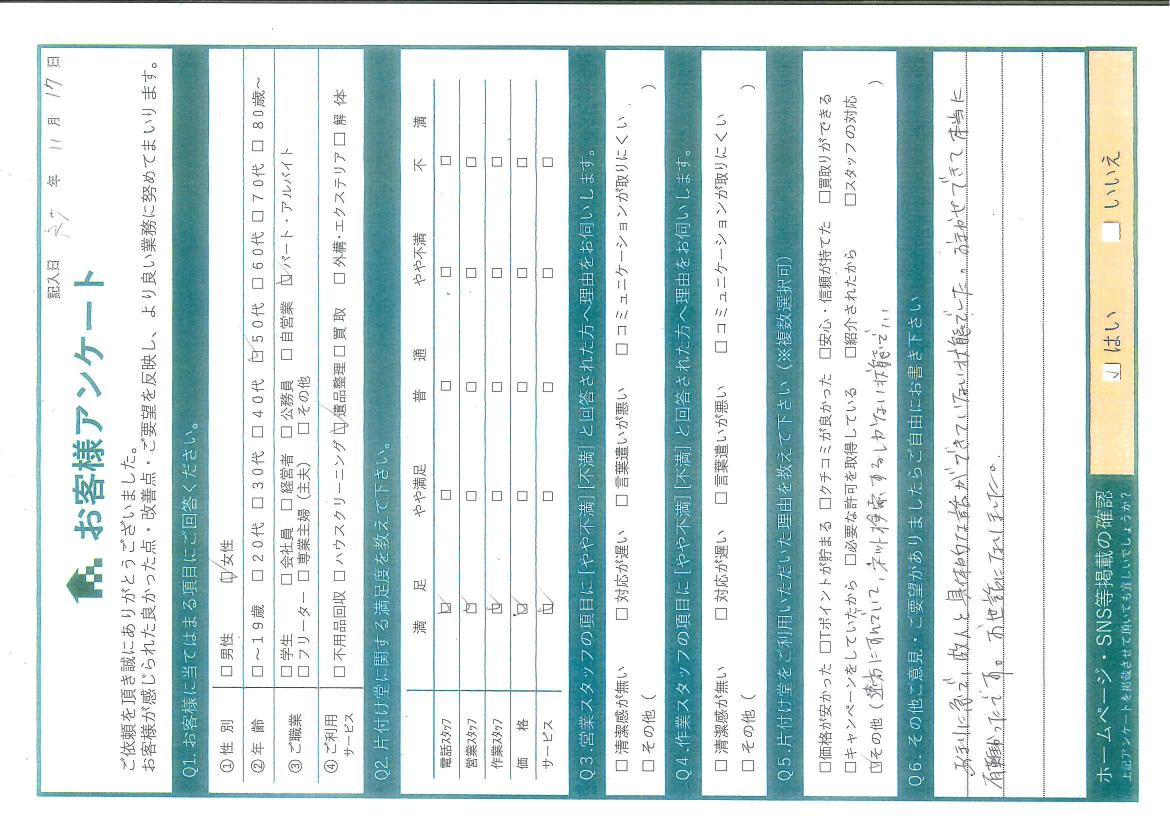 記入日 年 11 月 17 日
お客様アンケート
ご依頼を頂き誠にありがとうございました。
お客様が感じられた良かった点・改善点・ご要望を反映し、より良い業務に努めてまいります。
Q1.お客様に当てはまる項目にご回答ください。
①性 別 □男性 ☑女性
②年 齢 □～19歳 □20代 □30代 □40代 ☑50代 □60代 □70代 □80歳～
③ご職業 □学生 □会社員 □経営者 □公務員 □自営業 ☑パート・アルバイト
□フリーター □専業主婦(主夫) □その他
④ご利用サービス □不用品回収 □ハウスクリーニング ☑遺品整理 □買取 □外構・エクステリア □解体
Q2.片付け堂に関する満足度を教えて下さい。
満 足 やや満足 普 通 やや不満 不 満
電話スタッフ ☑ □ □ □ □
営業スタッフ ☑ □ □ □ □
作業スタッフ ☑ □ □ □ □
価 格 ☑ □ □ □ □
サービス ☑ □ □ □ □
Q3.営業スタッフの項目に[やや不満][不満]と回答された方へ理由をお伺いします。
□清潔感が無い □対応が遅い □言葉遣いが悪い □コミュニケーションが取りにくい
□その他( )
Q4.作業スタッフの項目に[やや不満][不満]と回答された方へ理由をお伺いします。
□清潔感が無い □対応が遅い □言葉遣いが悪い □コミュニケーションが取りにくい
□その他( )
Q5.片付け堂をご利用いただいた理由を教えて下さい(※複数選択可)
□価格が安かった □Tポイントが貯まる □クチコミが良かった □安心・信頼が持てた □買取りができる
□キャンペーンをしていたから □必要な許可を取得している □紹介されたから □スタッフの対応
☑その他(遠方にすんでいて、ネット検索するしかない状態で... )
Q6.その他ご意見・ご要望がありましたらご自由にお書き下さい
あまりに急で、故人と具体的な話ができていない状態でした。おまかせできて本当に
有難かったです。お世話になりました。
ホームページ・SNS等掲載の確認
上記アンケートを掲載させて頂いても宜しいでしょうか?
☑はい □いいえ